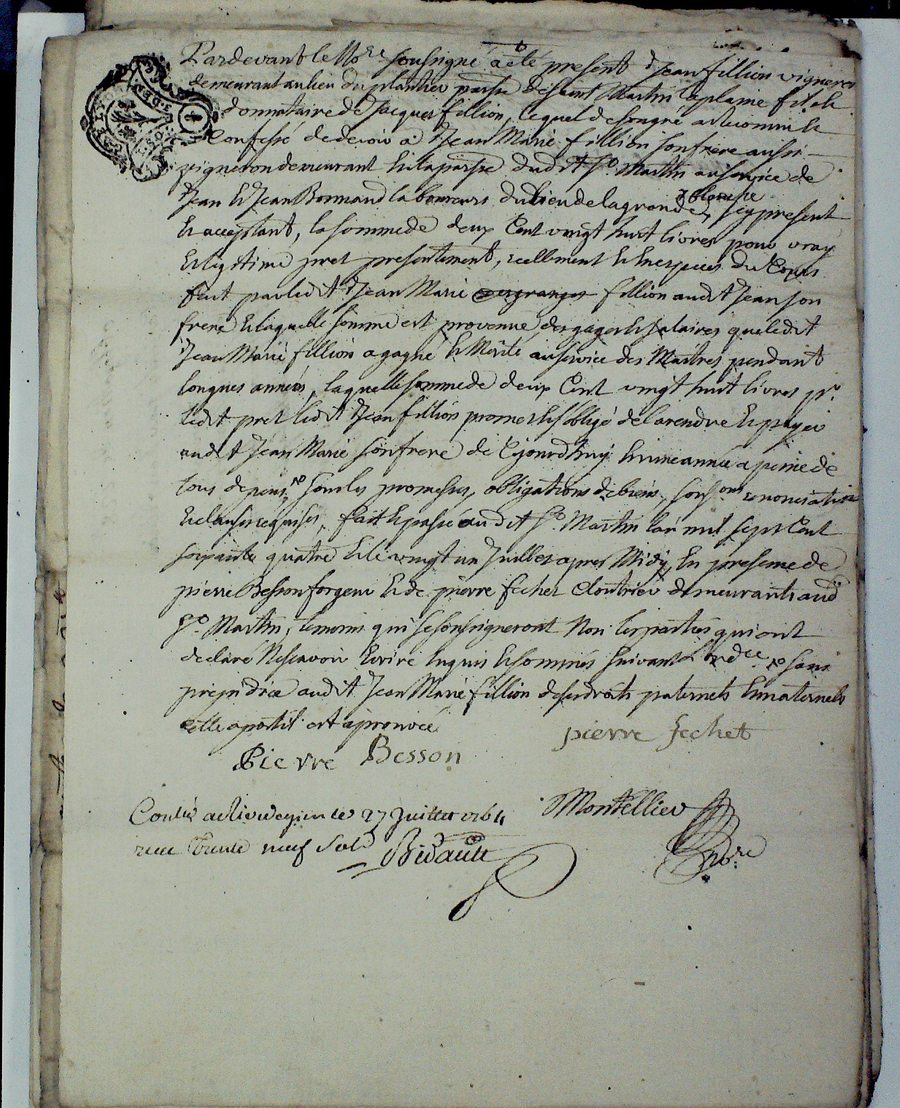 Pardevant le No.re sousigné a eté present Jean fillion vigneron
demeurant au lieu du plantier parsse de Saint Martin laplaine fils et
donnataire de Jacques fillion, lequel de son gré a reconnu et
Confessé de devoir à Jean Marie fillion son frere aussi
vigneron demeurant en la parsse dudit St. Martin au service de
Jean et Jean Bonnand laboureurs du lieu de lagrande, icy present
et acceptant, la somme de deux Cent vingt huit livres pour vray
et legitime pret presentement, reellement et en especes du Cours
fait par ledit Jean Marie fillion audit Jean son
frere et laquelle somme est provenüe des gages et salaires que ledit
Jean Marie fillion a gagné et merité au service des Maitres pendant
longues années, laquelle somme de deux Cent vingt huit livres pr.
ledit pret ledit Jean fillion promet et s'oblige de la rendre et payer
audit Jean Marie son frere de cejourd'huy en une année a peine de
tous depens, sous les promesses, obligations de biens, renonciation
et clauses requises, fait et passé audit St. Martin lan mil sept Cent
soixante quatre et le vingt un Juillet apres Midy, en presence de
pierre Besson forgeur et de pierre fechet Cloutrier demeurants aud.
St. Martin, temoins qui se sont signeront Non les parties qui ont
declaré Ne scavoir ecrire enquis et sommés suivant l'ord.ce sans
prejudice audit Jean Marie fillion de ses droits paternels et maternels
Pierre Besson
pierre fechet
Montellier
Contlé a Rivedegier le 27 Juillet 1764
receu trente neuf sols Bidault
N.re